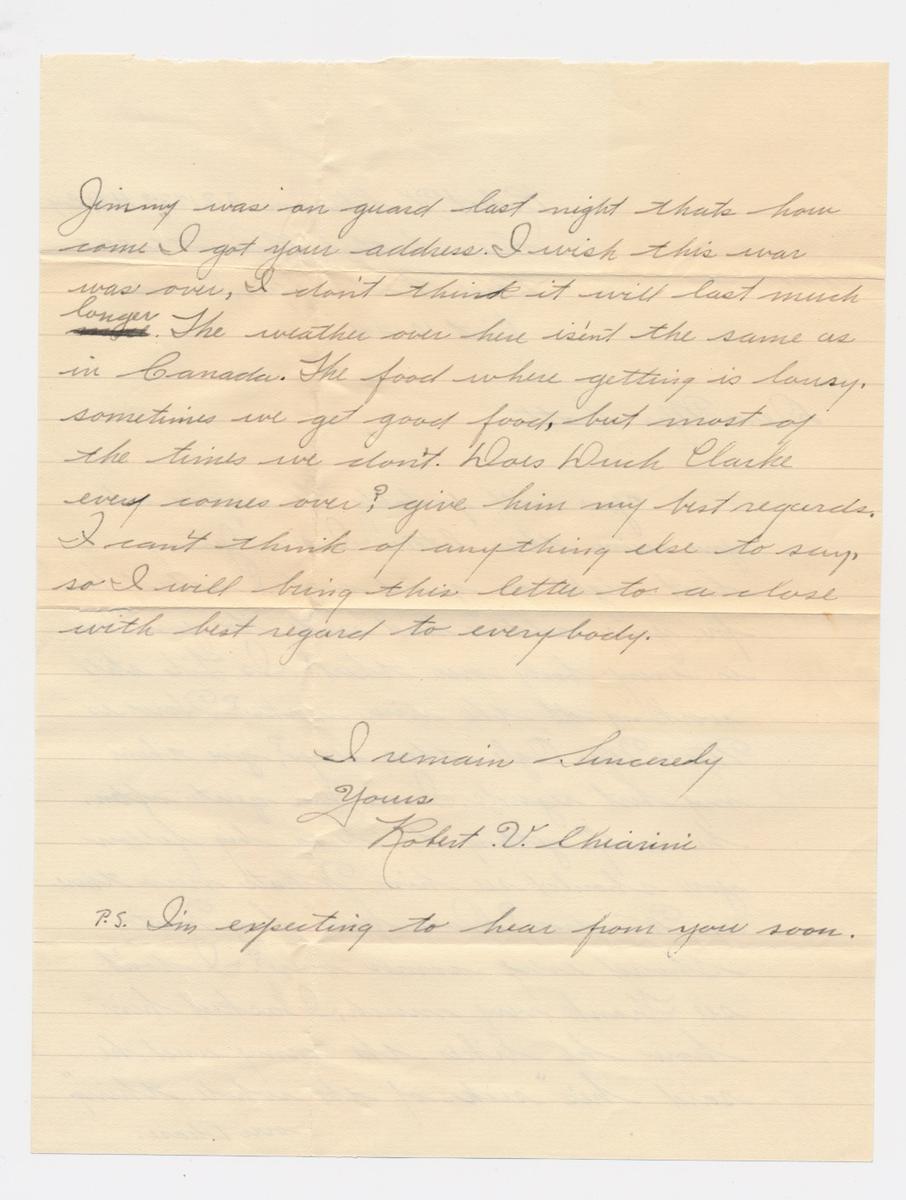 Jimmy was on guard last night thats how
come I got your address. I wish this war
was over, I don't think it will last much
longer. The weather over here is'ent the same as
in Canada. The food where getting is lousy.
sometimes we get good food, but most of
the times we don't. Does Duch Clarke
every comes over? give him my best regards.
I can't think of anything else to say,
so I will bring this letter to a close
with best regard to everybody.
I remain Sincerely
Yours
Robert .V. Chiarini
P.S. I'm expecting to hear from you soon.